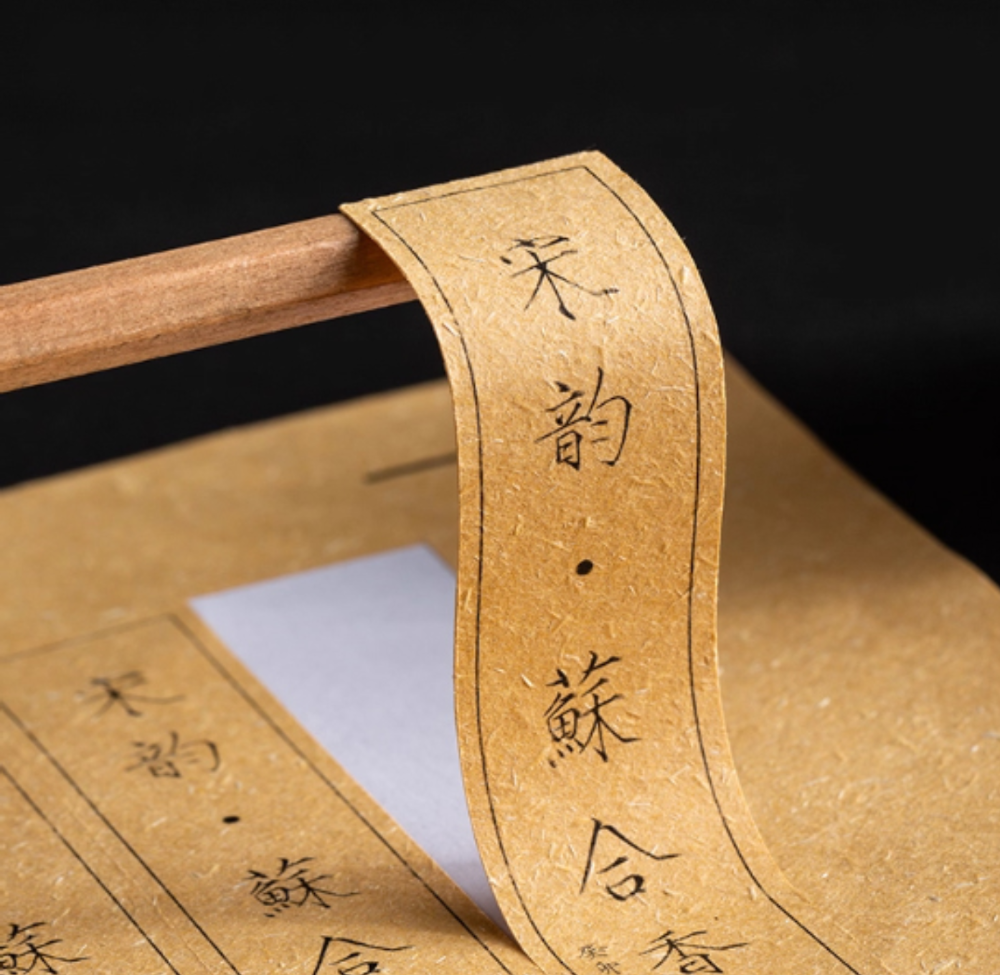 宋韵·蘇合香
癸卯
宋韵·蘇合
蘇